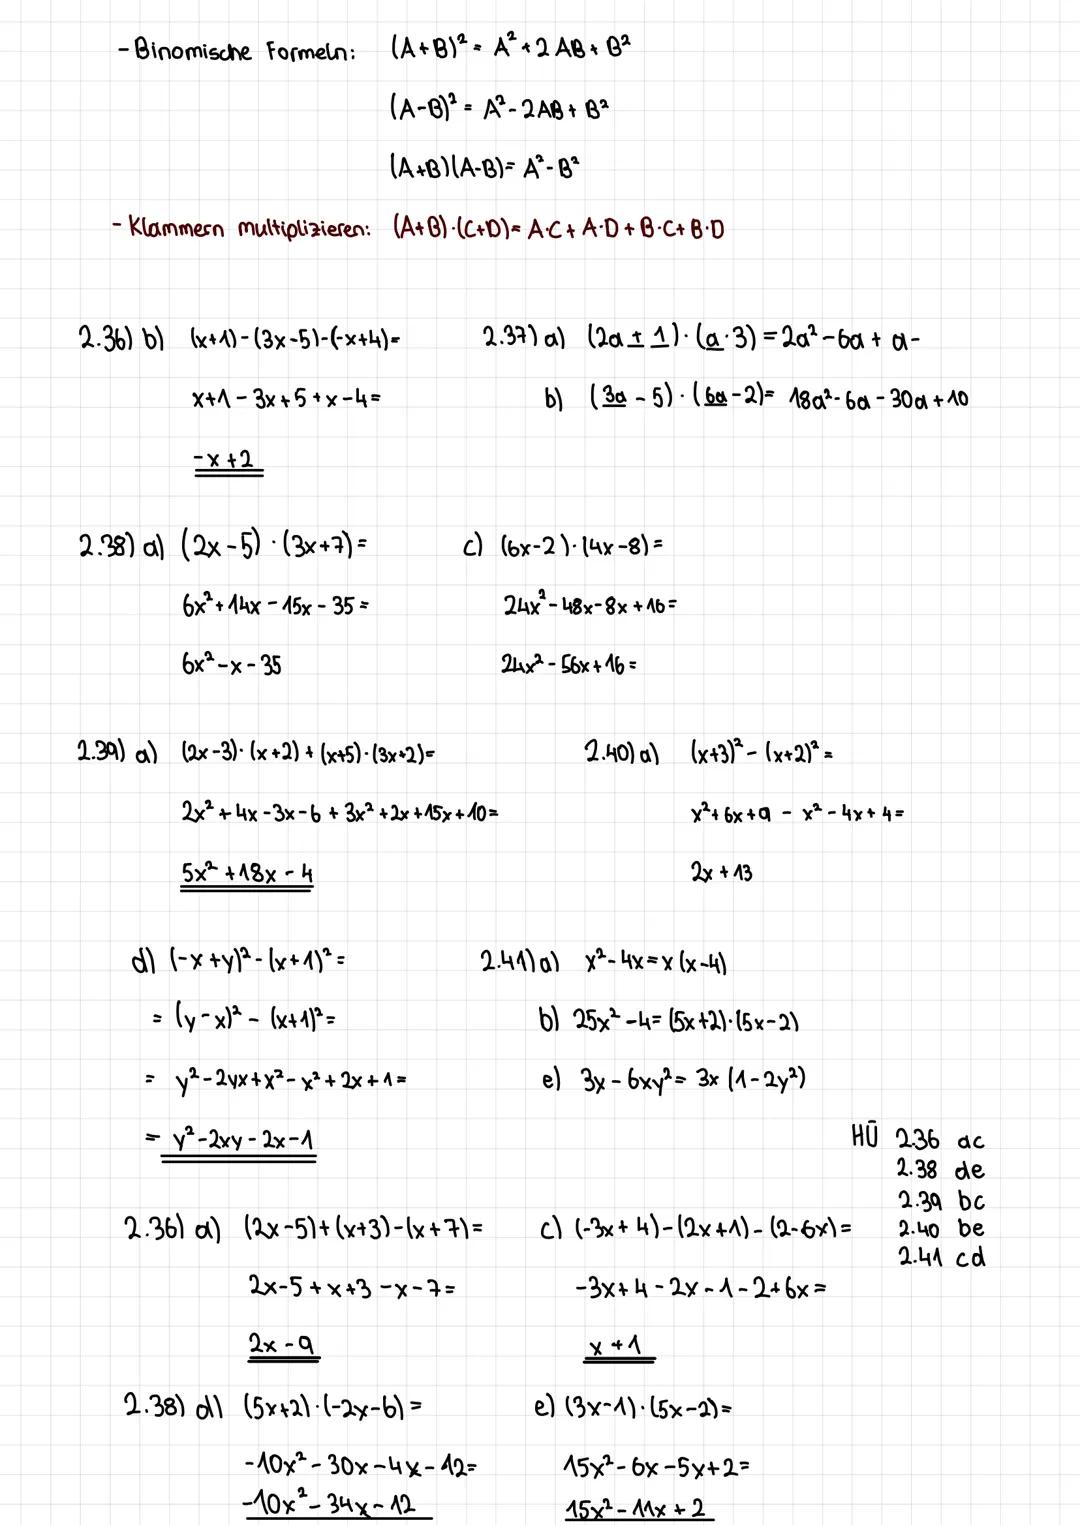 - Binomische Formeln: (A+B)² = A² + 2AB + B²
(A-B)² = A² - 2AB + B²
(A+B)(A-B) = A² - B²
- Klammern multiplizieren: (A+B)·(C+D) = A·C + A·D + B·C + B·D
2.36) b) (x+1) - (3x-5) - (-x+4) =
x+1 - 3x + 5 + x - 4 =
-x + 2
2.37) a) (2a + 1) · (a · 3) = 2a² - 6a + a -
b) (3a - 5) · (6a - 2) = 18a² - 6a - 30a + 10
2.38) a) (2x - 5) · (3x + 7) =
6x² + 14x - 15x - 35 =
6x² - x - 35
c) (6x-2) · (4x-8) =
24x² - 48x - 8x + 16 =
24x² - 56x + 16 =
2.39) a) (2x-3) · (x+2) + (x+5) · (3x+2) =
2x² + 4x - 3x - 6 + 3x² + 2x + 15x + 10 =
5x² + 18x - 4
2.40) a) (x+3)² - (x+2)² =
x² + 6x + 9 - x² - 4x + 4 =
2x + 13
d) (-x+y)² - (x+1)² =
= (y-x)² - (x+1)² =
= y² - 2yx + x² - x² + 2x + 1 =
= y² - 2xy - 2x - 1
2.41) a) x² - 4x = x (x-4)
b) 25x² - 4 = (5x+2) · (5x-2)
e) 3x - 6xy² = 3x (1 - 2y²)
HÜ 2.36 ac
2.38 de
2.39 bc
2.40 be
2.41 cd
2.36) a) (2x-5) + (x+3) - (x+7) =
2x - 5 + x + 3 - x - 7 =
2x - 9
c) (-3x + 4) - (2x+1) - (2-6x) =
-3x + 4 - 2x - 1 - 2 + 6x =
x + 1
2.38) d) (5x+2) · (-2x-6) =
-10x² - 30x - 4x - 12 =
-10x² - 34x - 12
e) (3x-1) · (5x-2) =
15x² - 6x - 5x + 2 =
15x² - 11x + 2